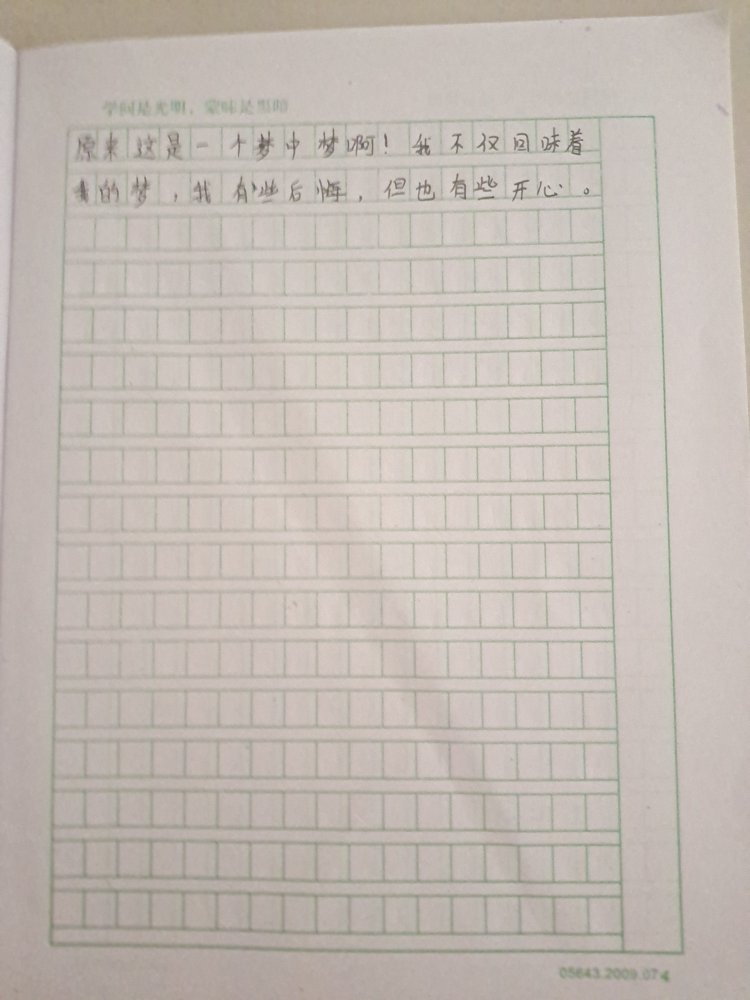 学问是光明，蒙昧是黑暗
原来这是一个梦中梦啊！我不仅回味着
我的梦，我有些后悔，但也有些开心。
05643.2009.074